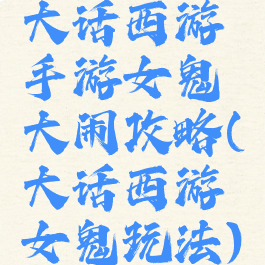 大话西游
手游女鬼
大闹攻略(
大话西游
女鬼玩法)